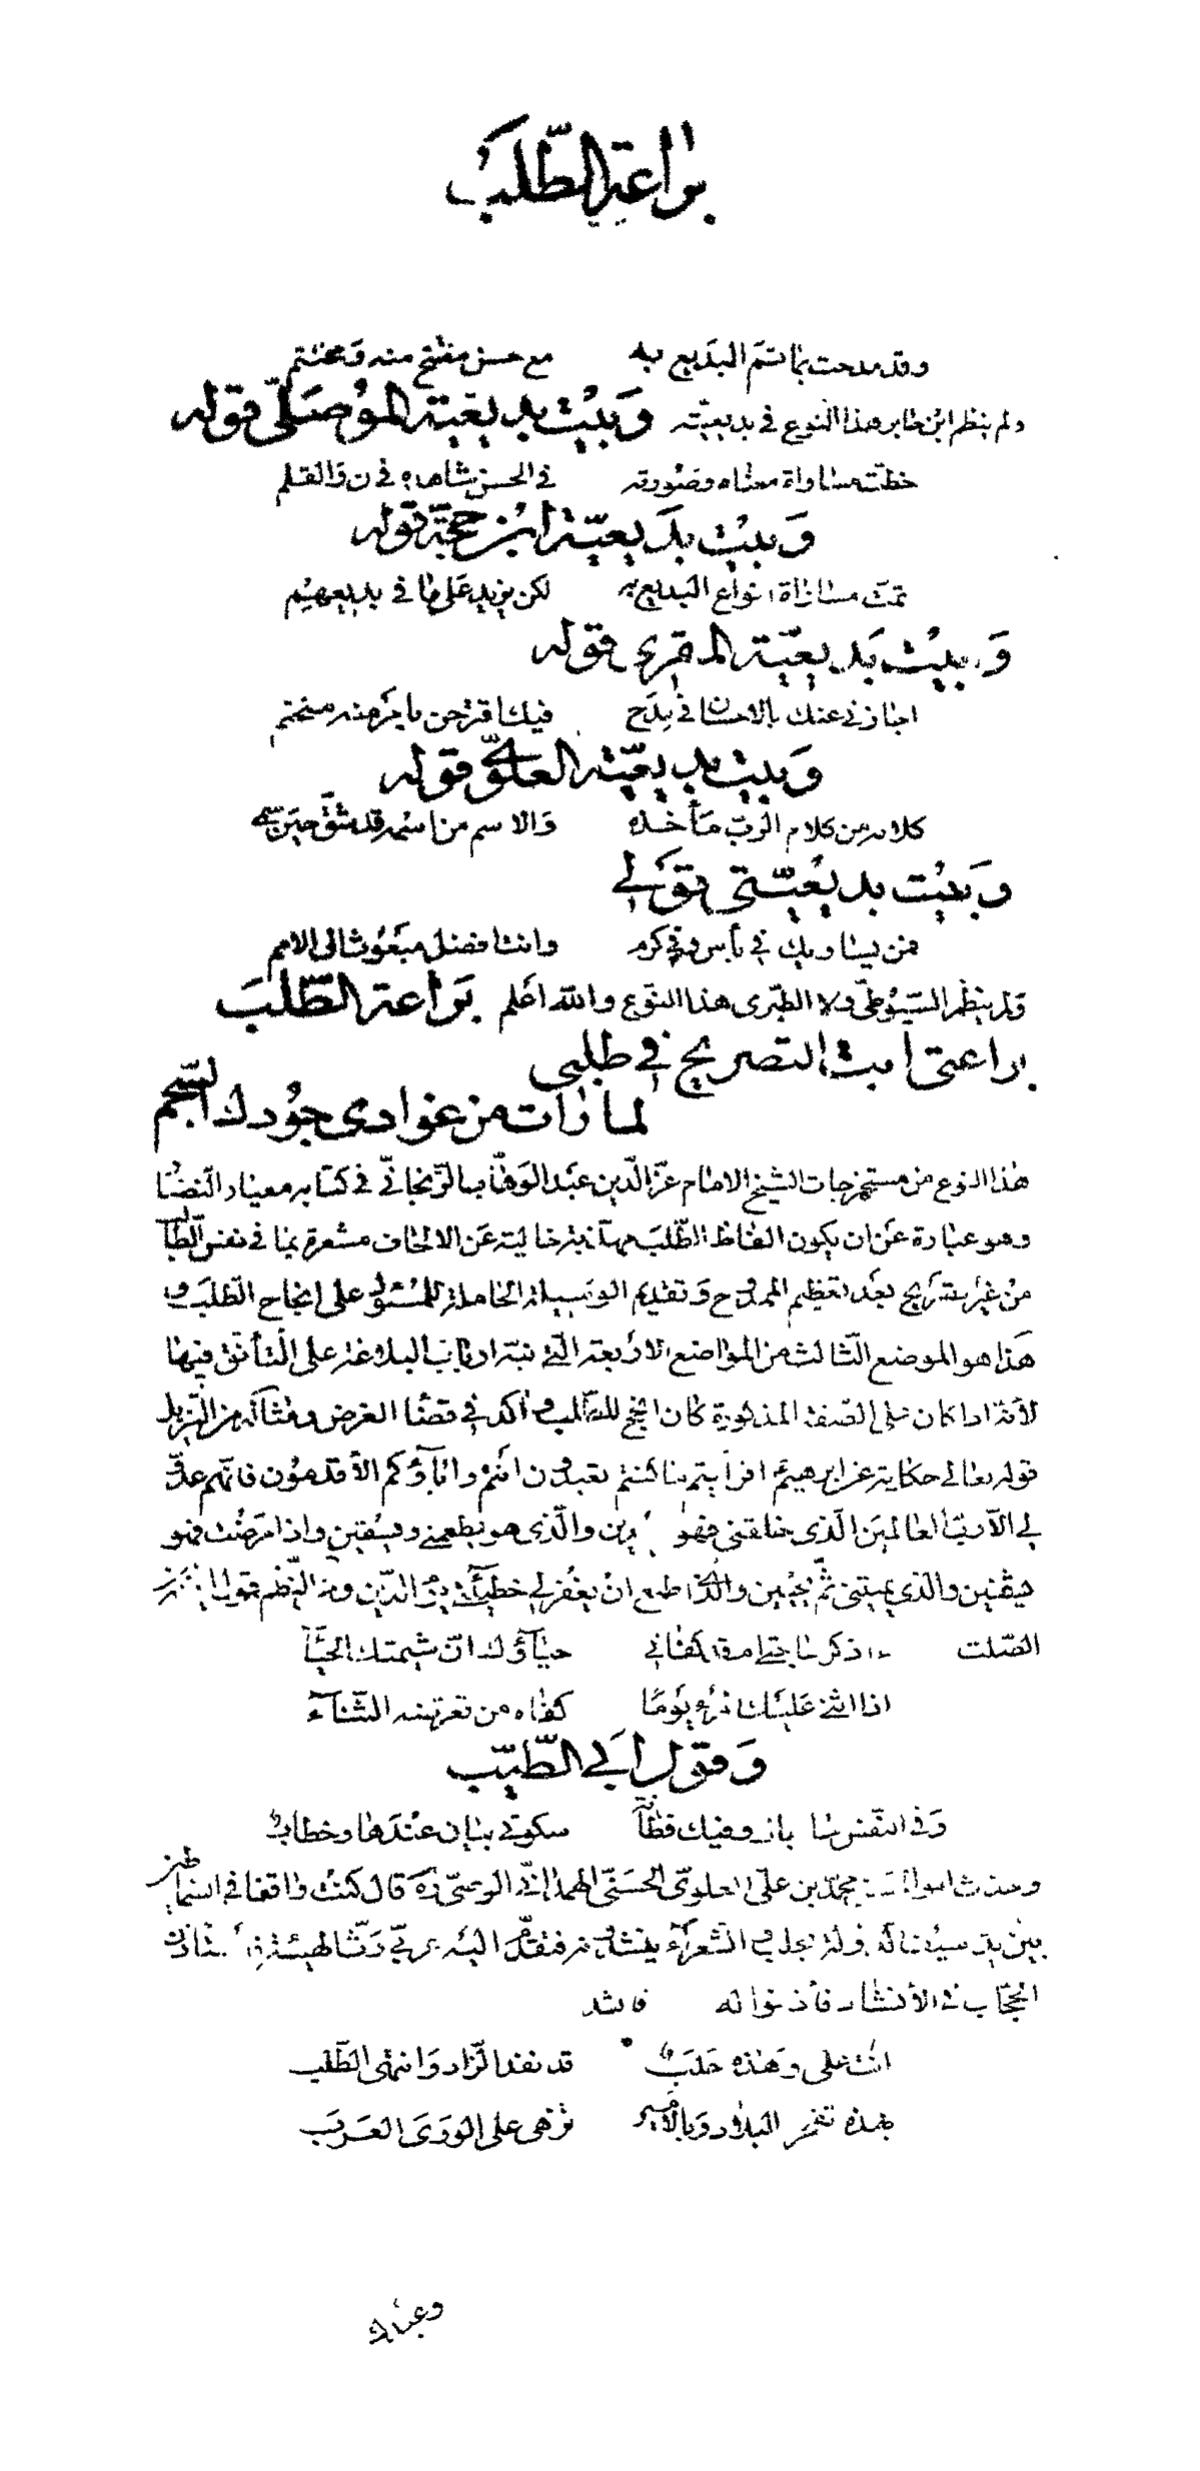 براعة الطلب
وقد مدحت بما تم البديع به مع حسن مفتتح منه ومختتم
ولم ينظم ابن جابر هذا النوع في بديعيته وبيت بديعية الموصلي قوله
حظت مساواة معناه وصورته في الحسن شاهده في ن والقلم
وبيت بديعية ابن حجة قوله
تمت مساواة انواع البديع به لكن يزيد على ما في بديعهم
وبيت بديعية المقري قوله
بالاحسان في مدح فيك منه مختتم
وبيت بديعية العلوي قوله
كلامه من كلام الرب مأخذه والاسم من اسمه قد شق حين سمي
وبيت بديعيتي قولي
فمن يساويك في بأس وفي كرم وانت افضل مبعوث الى الامم
ولم ينظم السيوطي ولا الطبري هذا النوع والله اعلم براعة الطلب
براعتي ابت التصريح في طلبي
لما رأت من غوادي جودك السجم
هذا النوع من مستخرجات الشيخ الامام عز الدين عبد الوهاب الزنجاني في كتابه معيار النضار
وهو عبارة عن ان يكون الفاظ الطلب مهذبة خالية عن الالحاف مشعرة بما في نفس الطالب
من غير تصريح بعد تعظيم الممدوح وتقديم الوسيلة الحاملة للمسئول على انجاح الطلب و
هذا هو الموضع الثالث من المواضع الاربعة التي نبه ارباب البلاغة على التأنق فيها
لأنه اذا كان على الصفة المذكورة كان انجح للطلب وآكد في قضاء الغرض ومثاله من التنزيل
قوله تعالى حكاية عن ابرهيم افرأيتم ما كنتم تعبدون انتم وآباؤكم الأقدمون فانهم عدو
لي الا رب العالمين الذي خلقني فهو يهدين والذي هو يطعمني ويسقين واذا مرضت فهو
يشفين والذي يميتني ثم يحيين والذي اطمع ان يغفر لي خطيئتي يوم الدين ومن النظم قول امية بن
الصلت ءاذكر حاجتي ام قد كفاني حياؤك ان شيمتك الحياء
اذا اثنى عليك المرء يوما كفاه من تعرضه الثناء
وقول ابي الطيب
وفي النفس حاجات وفيك فطانة سكوتي بيان عندها وخطاب
وحدث ابو الحسن محمد بن علي العلوي الحسني الهمداني الوصي قال كنت واقفا في السماطين
بين يدي سيف الدولة بحلب والشعراء ينشدونه فتقدم اليه اعرابي رث الهيئة فاستأذن
الحجاب في الأنشاد فأذنوا له فانشد
انت علي وهذه حلب قد نفد الزاد وانتهى الطلب
بهذه تفخر البلاد وبالأمير تزهى على الورى العرب